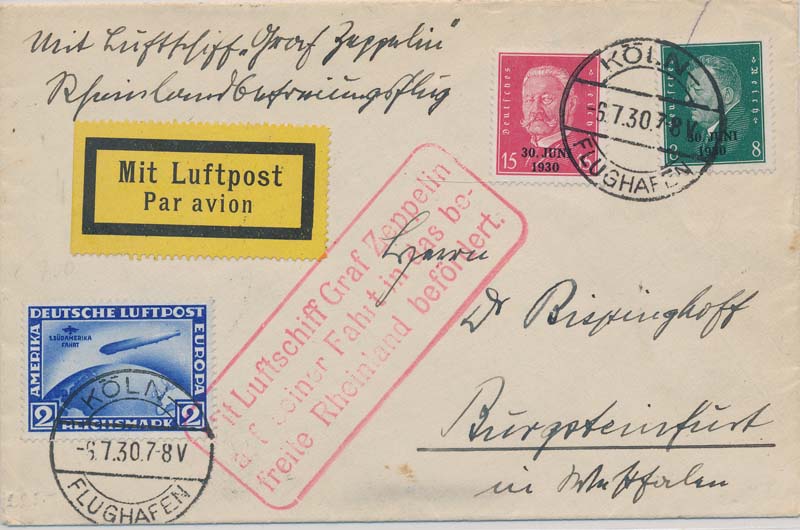 Mit Luftschiff „Graf Zeppelin"
Rheinlandbefreiungsflug
Deutsches Reich
15 15
30. JUNI
1930
Deutsches Reich
8 8
30. JUNI
1930
KÖLN
-6.7.30.7-8 V
FLUGHAFEN
Mit Luftpost
Par avion
Mit Luftschiff Graf Zeppelin
auf seiner Fahrt in das be-
freite Rheinland befördert.
Herrn
Dr Rispinghoff
Burgsteinfurt
in Westfalen
DEUTSCHE LUFTPOST
AMERIKA
EUROPA
1. SÜDAMERIKA
FAHRT
2 REICHSMARK 2
KÖLN
-6.7.30.7-8 V
FLUGHAFEN